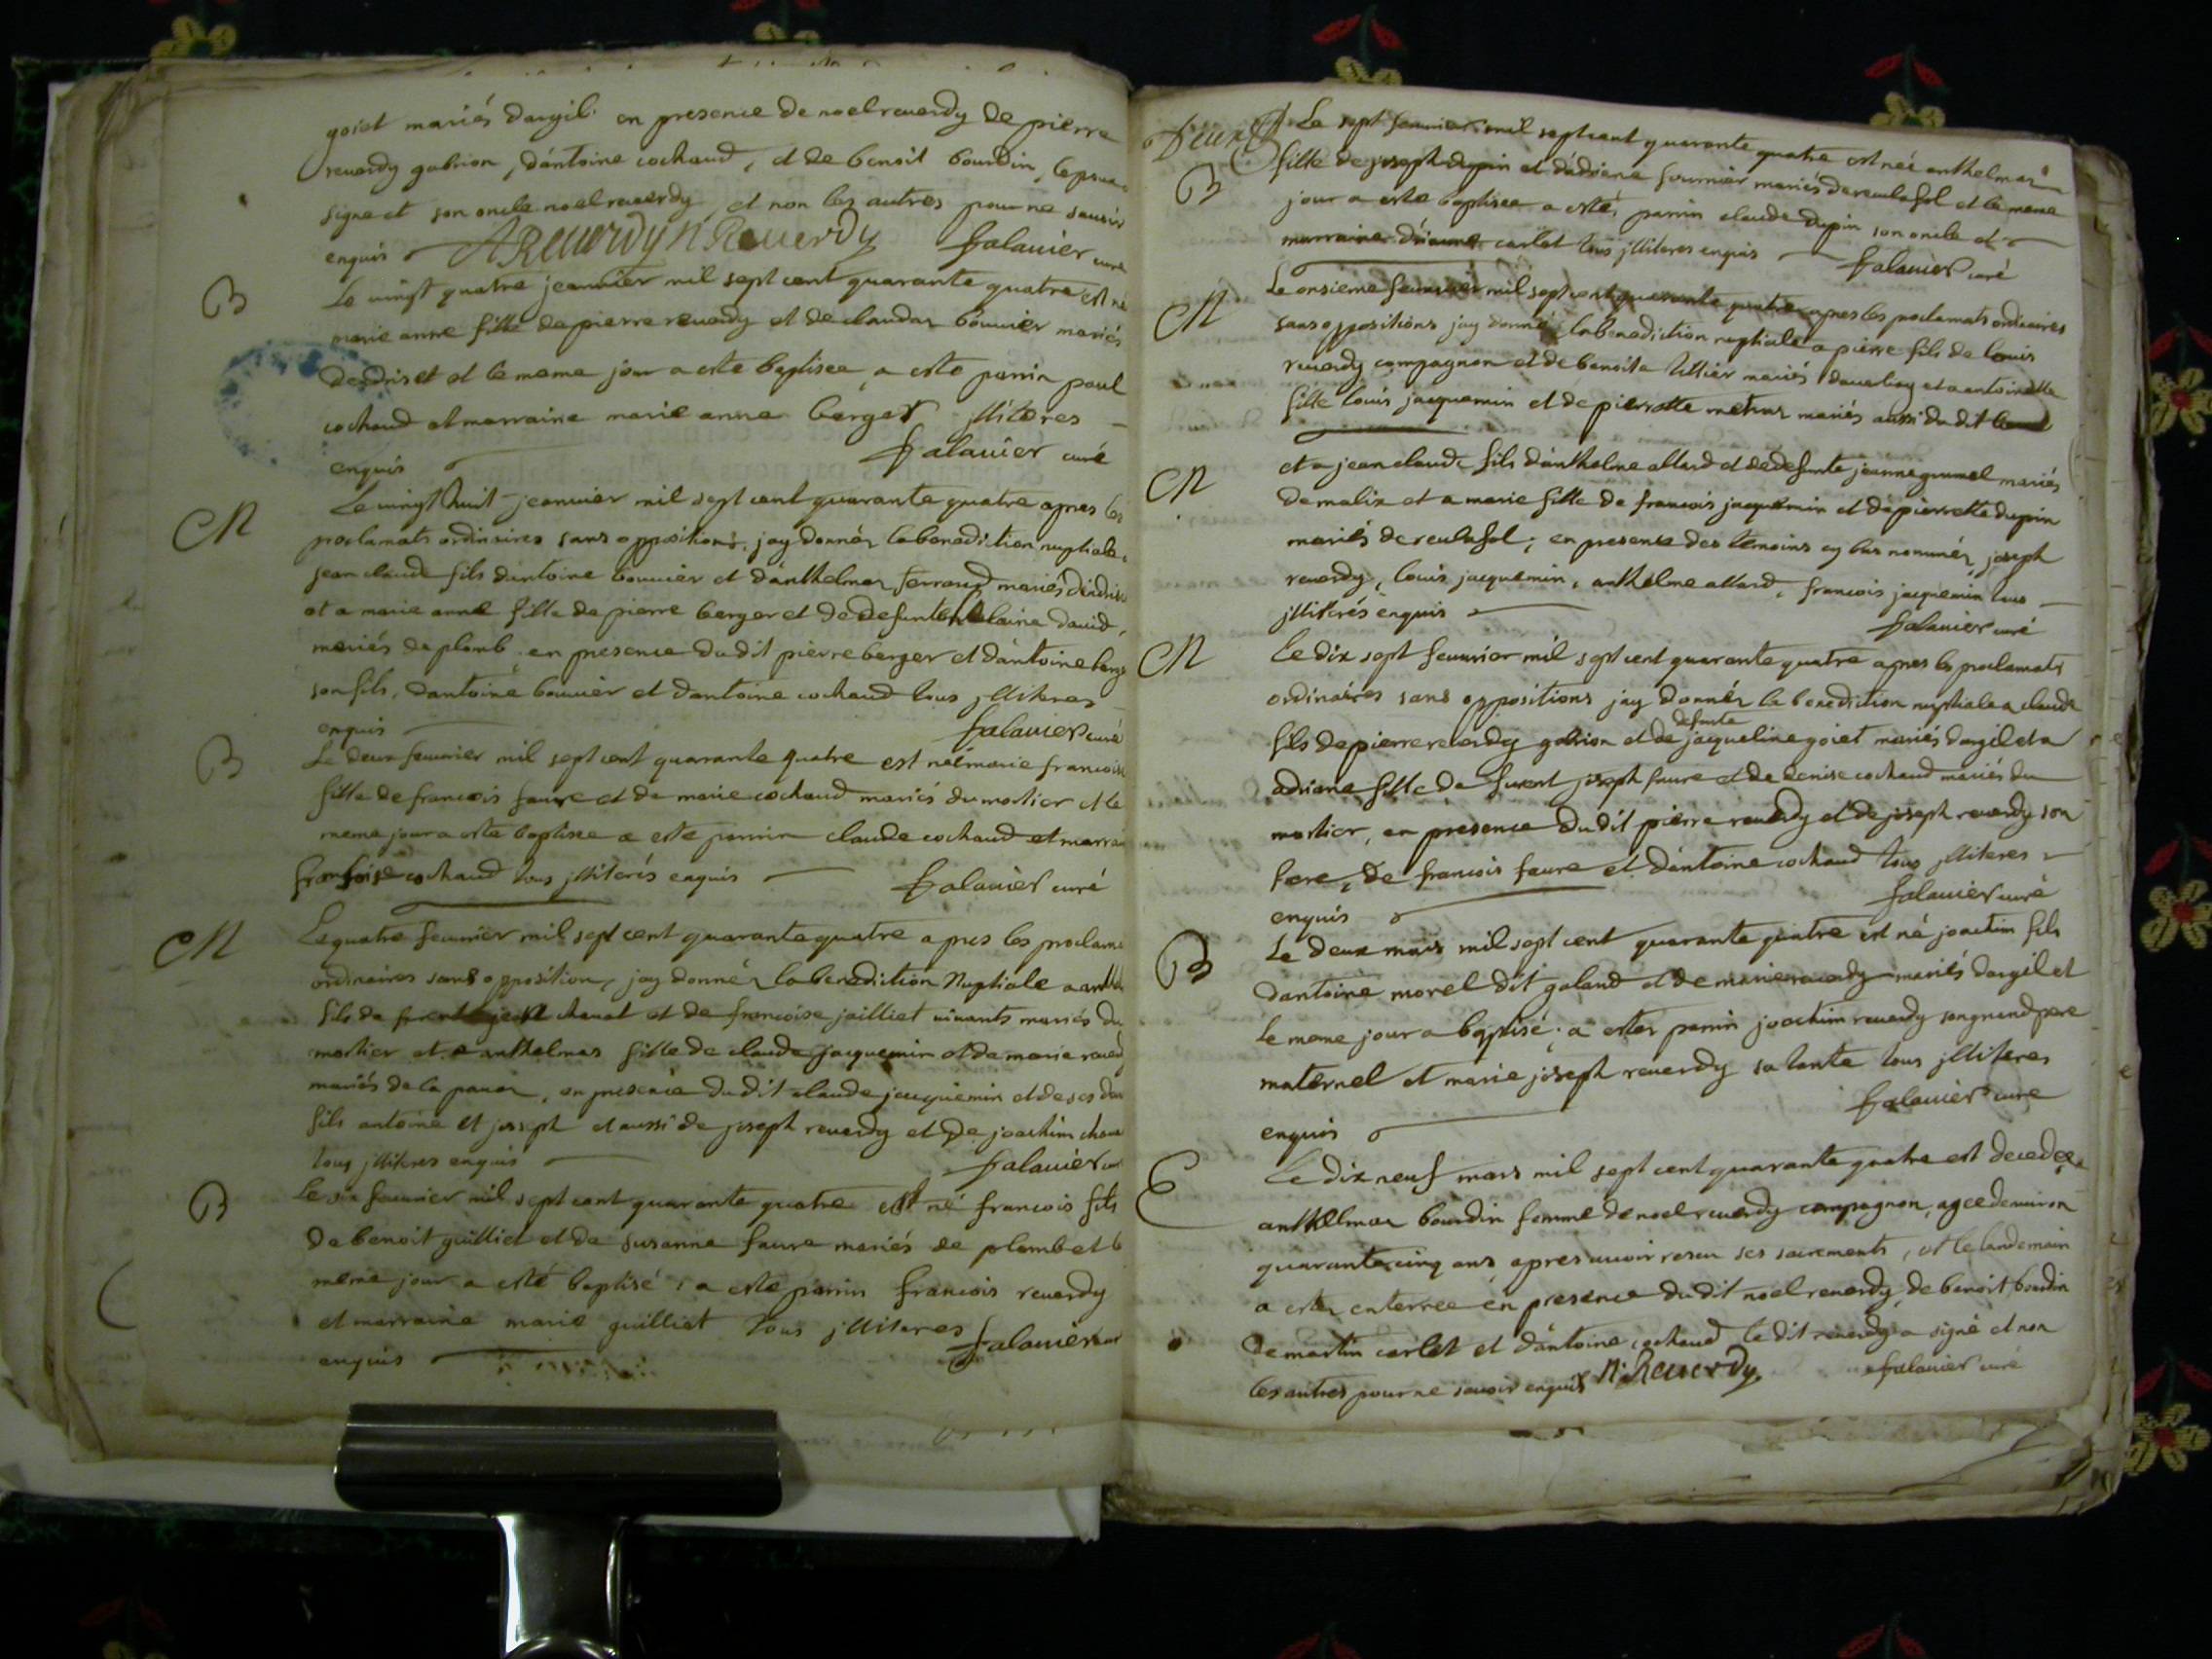 goiet mariés dargil en presence de noel reuerdy de pierre
reuerdy gabrion, dantoine cochaud, et de benoit bourdin, le
signe et son oncle noel reuerdy et non les autres pour ne sauoir
enquis A Reuerdy N Reuerdy falauier curé
B
Le uingt quatre jeanuier mil sept cent quarante quatre est né
marie anne fille de pierre reuerdy et de claudaz bouuier mariés
dendriset et le meme jour a esté baptisee, a esté parrin paul
cochaud et marraine marie anne berger illiteres
enquis falauier curé
M
Le uingt huit jeanuier mil sept cent quarante quatre apres les
proclamats ordinaires sans oppositions, jay donnéz la benediction nuptiale a
jean claude fils dantoine bouuier et danthelmaz ferraud mariés
et a marie anne fille de pierre berger et de defunte helaine dauid,
mariés de plomb, en presence du dit pierre berger et dantoine berger
son fils, dantoine bouuier et dantoine cochaud tous illiteres
enquis falauier curé
B
Le deux feurier mil sept cent quarante quatre est née marie francoise
fille de francois faure et de marie cochaud mariés du mortier et le
meme jour a esté baptisee a esté parrin claude cochaud et marrai
francoise cochaud tous illiterés enquis falauier curé
M
Le quatre feurier mil sept cent quarante quatre apres les proclama
ordinaires sans opposition, jay donnéz la benediction Nuptiale a
fils de chauat et de francoise jailliet uiuants mariés du
mortier et a anthelmaz fille de claude jacquemin et de marie reuerdy
mariés de la panaz, en presence du dit claude jacquemin et de ses deux
fils antoine et joseph et aussi de joseph reuerdy et de joachim
tous illiteres enquis falauier curé
B
Le six feurier mil sept cent quarante quatre est né francois fils
de benoit guilliet et de susanne faure mariés de plomb et le
meme jour a esté baptisé, a esté parrin francois reuerdy
et marraine marie guilliet tous illiteres
enquis falauier curé
Deux
B
Le sept feurier mil sept cent quarante quatre est née anthelmaz
fille de joseph dupin et dadriene fournier mariés de reculafol et le meme
jour a esté baptisee a esté, parrin claude dupin son oncle et
marraine carlet tous illiteres enquis falauier curé
M
Le onsieme feurier mil sept cent quarante quatre apres les proclamats ordinaires
sans oppositions jay donné la benediction nuptiale a pierre fils de louis
reuerdy compagnon et de benoite tillier mariés et a antoinette
fille louis jacquemin et de pierrotte mariés aussi du dit
M
et a jean claude fils danthelme allard et de defunte jeanne grumel mariés
de malix et a marie fille de francois jacquemin et de pierrette dupin
mariés de reculafol; en presence des temoins cy bas nommés, joseph
reuerdy, louis jacquemin, anthelme allard, francois jacquemin tous
illiterés enquis falauier curé
M
Le dix sept feurier mil sept cent quarante quatre apres les proclamats
ordinaires sans oppositions jay donnéz la benediction nuptiale a claude
fils de pierre reuerdy gabrion et de defunte jacqueline goiet mariés dargil et a
adriane fille de furent joseph faure et de denise cochaud mariés du
mortier, en presence du dit pierre reuerdy et de joseph reuerdy son
frere, de francois faure et dantoine cochaud tous illiteres
enquis falauier curé
B
Le deux mars mil sept cent quarante quatre est né joactim fils
dantoine morel dit galand et de marie reuerdy mariés dargil et
le meme jour a baptisé; a estez parrin joachim reuerdy son grand pere
maternel et marie joseph reuerdy sa tante tous illiteres
enquis falauier curé
E
Le dix neuf mars mil sept cent quarante quatre est decedee
anthelmaz bourdin femme de noel reuerdy compagnon, agee denuiron
quarante cinq ans apres auoir resu ses sacrements, et le landemain
a estez enterree en presence du dit noel reuerdy, de benoit bourdin
de martin carlet et dantoine cochaud le dit reuerdy a signé et non
les autres pour ne sauoir enquis N. Reuerdy falauier curé